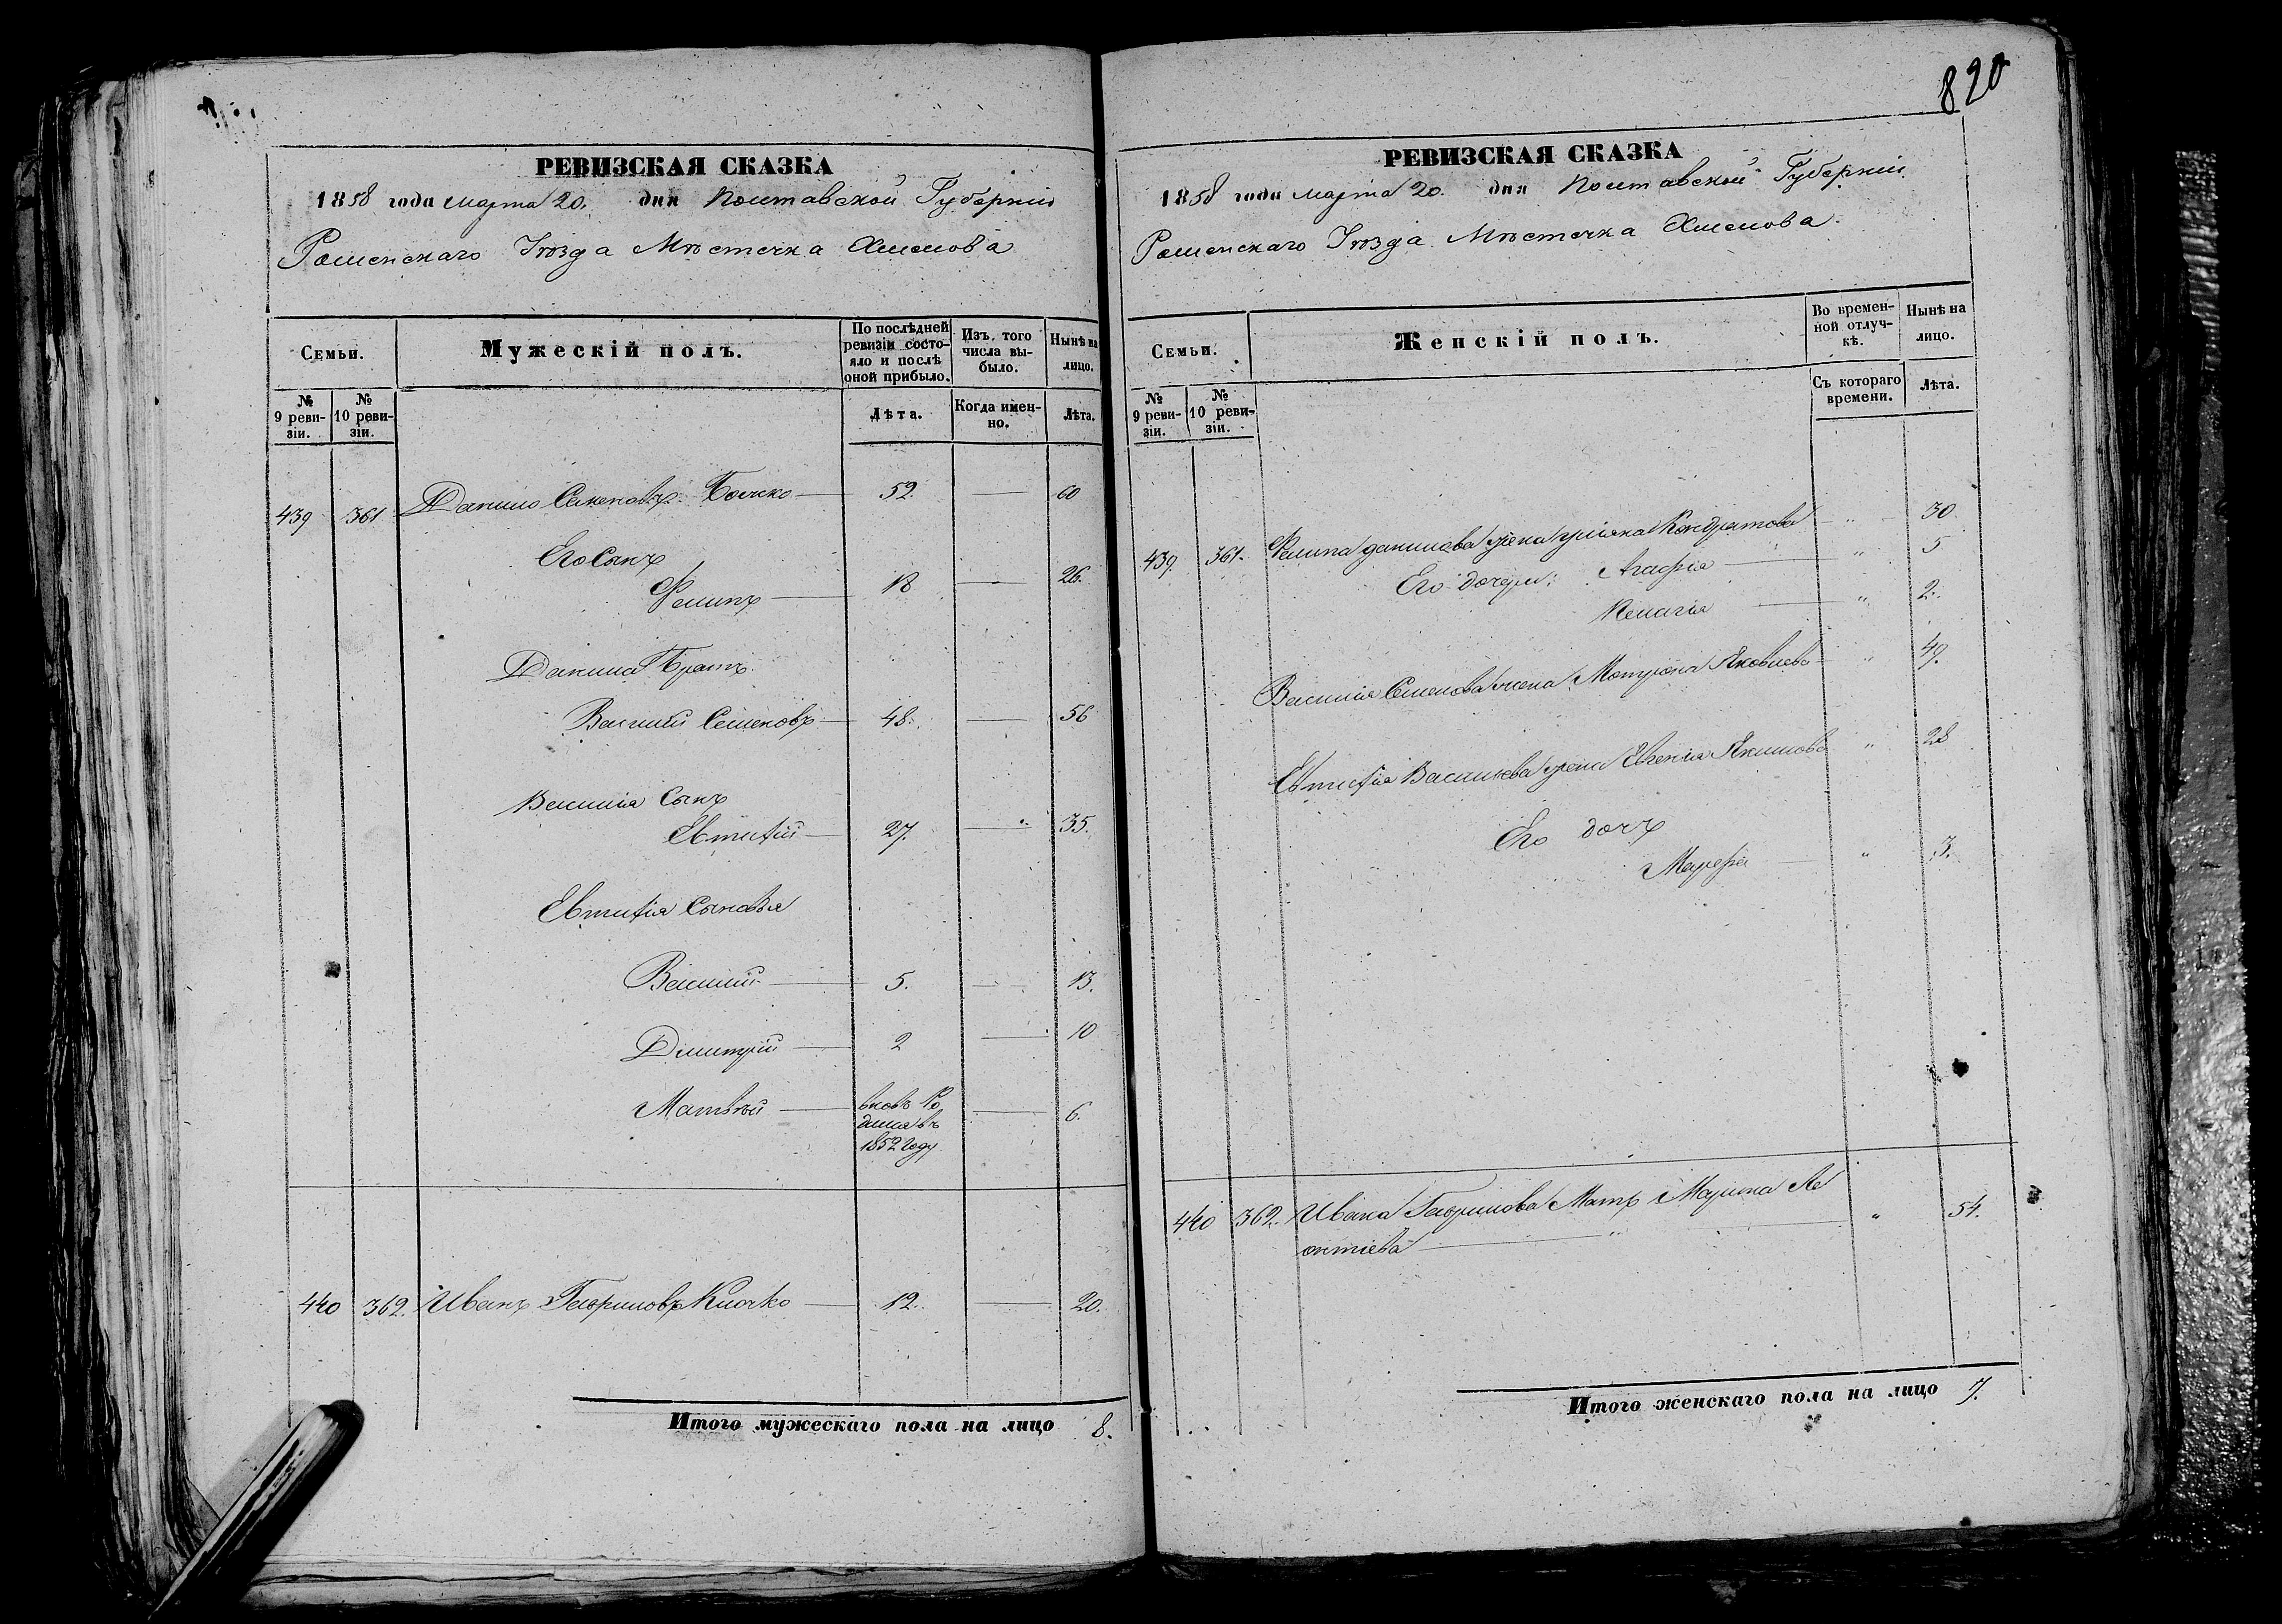 820
РЕВИЗСКАЯ СКАЗКА
1858 года марта 20. дня Полтавской Губерніи
Роменскаго Уѣзда Мѣстечка Хмелова
Семьи.
Мужескій полъ.
По послѣдней ревизіи состояло и послѣ оной прибыло.
Изъ того числа выбыло.
Нынѣ на лицо.
№ 9 ревизіи.
№ 10 ревизіи.
Лѣта.
Когда именно.
Лѣта.
439 361 Данило Семеновъ 52. 60
Его Сынъ
Филипъ 18 26.
Данила Братъ
Василій Семеновъ 48. 56
Василія Сынъ
Евтифій 27. 35.
Евтифія Сыновья
Василій 5. 13.
Димитрій 2 10
Матвѣй вновь Ро 6.
дился въ
1852 году
440 362. Иванъ Гавриловъ Клочко 12. 20.
Итого мужескаго пола на лицо 8.
РЕВИЗСКАЯ СКАЗКА
1858 года марта 20. дня Полтавской Губерніи.
Роменскаго Уѣзда Мѣстечка Хмелова.
Семьи.
Женскій полъ.
Во временной отлучкѣ.
Нынѣ на лицо.
№ 9 ревизіи.
№ 10 ревизіи.
Съ котораго времени.
Лѣта.
439. 361. Филипа Данилова жена Ульяна Кондратова " 30.
Его дочери: Агафія " 5
Пелагія " 2.
Василія Семенова жена Матрона Яковлева " 49.
Евтифія Васильева жена Евгенія Якимова " 28
Его дочь
Марфа " 3.
440 362. Ивана Гаврилова Мать Марина Ле
онтіева " " 54.
Итого женскаго пола на лицо 7.